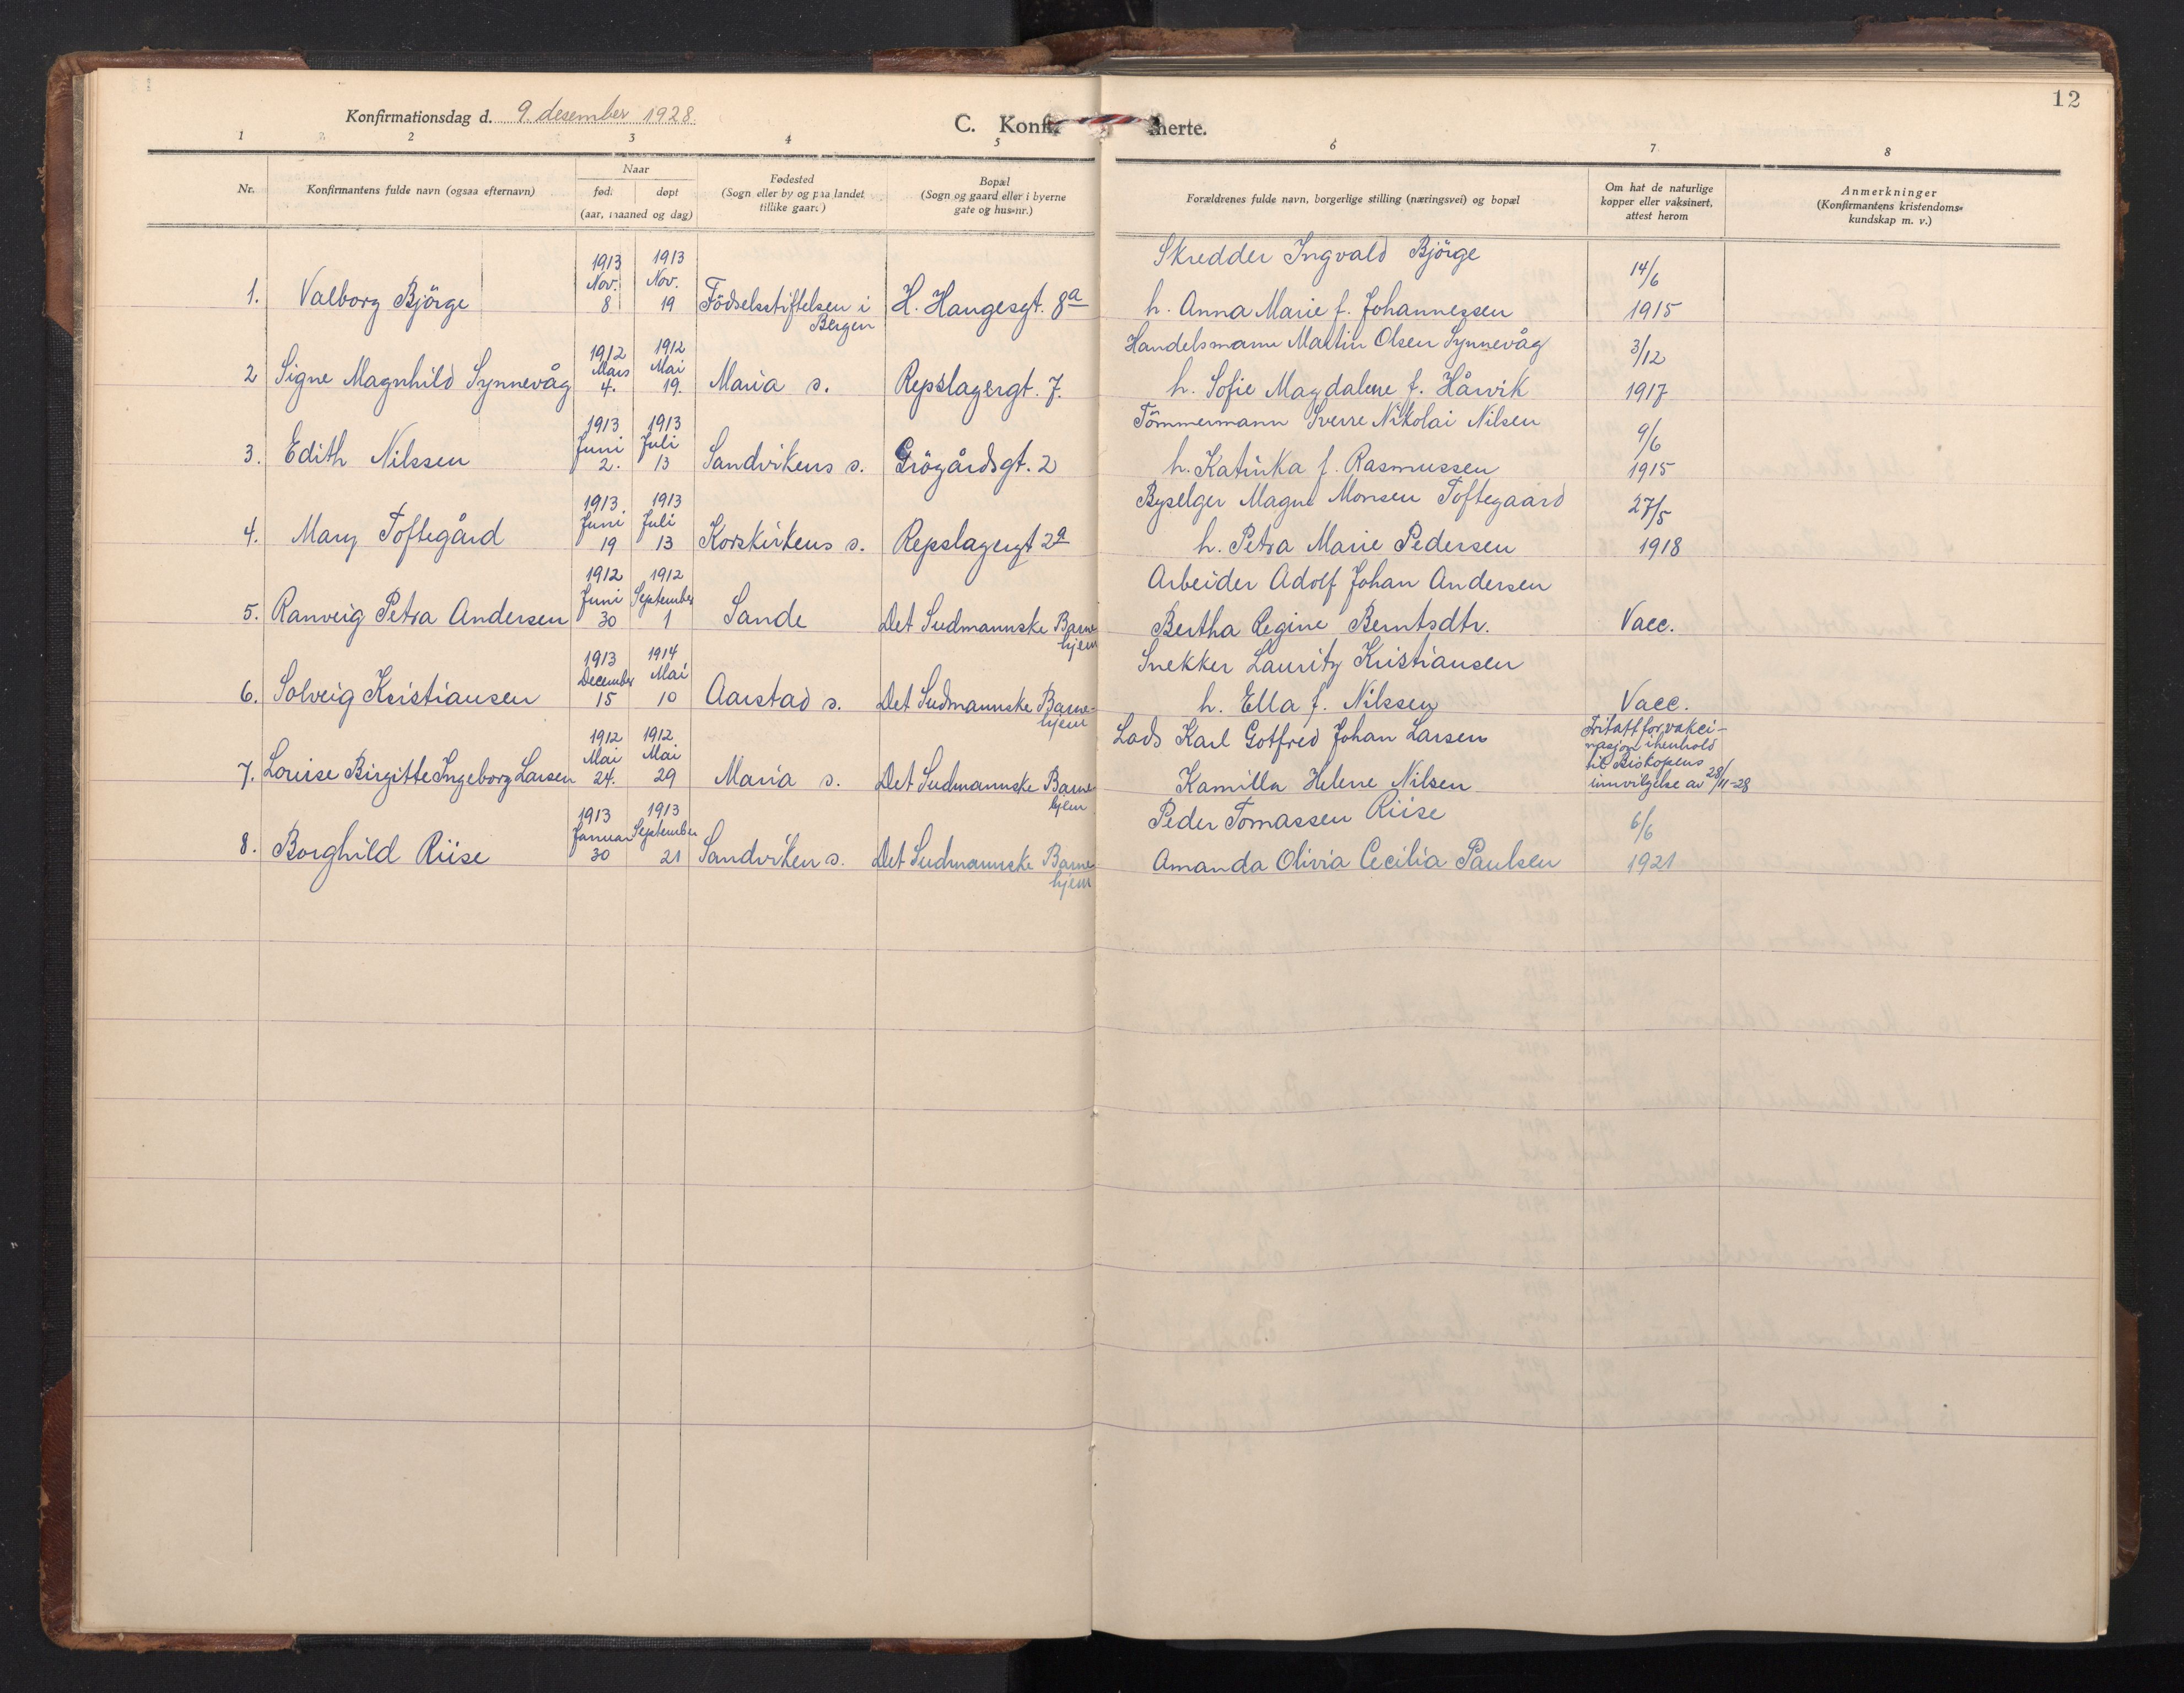 12
Konfirmationsdag d. 9. desember 1928
C. Konfi merte.
1 2 3 4 5 6 7 8
Nr. Konfirmantens fulde navn (ogsaa efternavn) Naar født døpt (aar, maaned og dag) Fødested (Sogn eller by og paa landet tillike gaard) Bopæl (Sogn og gaard eller i byerne gate og hus-nr.) Forældrenes fulde navn, borgerlige stilling (næringsvei) og bopæl Om hat de naturlige kopper eller vaksinert, attest herom Anmerkninger (Konfirmantens kristendoms-kundskap m. v.)
1913 1913 Skredder Ingvald Björge
Nov. Nov. 14/6
1. Valborg Björge 8 19 Födselsstiftelsen i Bergen H. Haugesgt. 8a h. Anna Marie f. Johannessen 1915
1912 1912 Handelsmann Martin Olsen Synnevåg
Mars Mai 3/12
2 Signe Magnhild Synnevåg 4. 19. Maria s. Repslagergt. 7. h. Sofie Magdalene f. Hårvik 1917
1913 1913 Tömmermann Sverre Nikolai Nilsen
Juni Juli 9/6
3. Edith Nilssen 2. 13 Sandvikens s. Grögårdsgt. 2 h. Katinka f. Rasmussen 1915
1913. 1913 Byselger Magne Monsen Toftegaard
Juni Juli 27/5
4. Mary Toftegård 19 13 Korskirkens s. Repslagergt 2a h. Petra Marie Pedersen 1918
1912 1912 Arbeider Adolf Johan Andersen
Juni September
5. Ranveig Petra Andersen 30 1 Sande Det Sudmannske Barnehjem Bertha Regine Berntsdtr. Vacc.
1913 1914 Snekker Lauritz Kristiansen
December Mai
6. Solveig Kristiansen 15 10 Aarstad s. Det Sudmannske Barne-hjem h. Ella f. Nilssen Vacc.
1912 1912 Lods Karl Gotfred Johan Larsen Fritatt for vakci-
Mai Mai nasjon ihenhold
7. Louise Birgitte Ingeborg Larsen 24. 29 Maria s. Det Sudmannske Barnehjem Kamilla Helene Nilsen til Biskopens
innvilgelse av 28/11-28
1913 1913 Peder Tomassen Riise
Januar September 6/6
8. Borghild Riise 30 21 Sandviken s. Det Sudmannske Barnehjem Amanda Olivia Cecilia Paulsen 1921